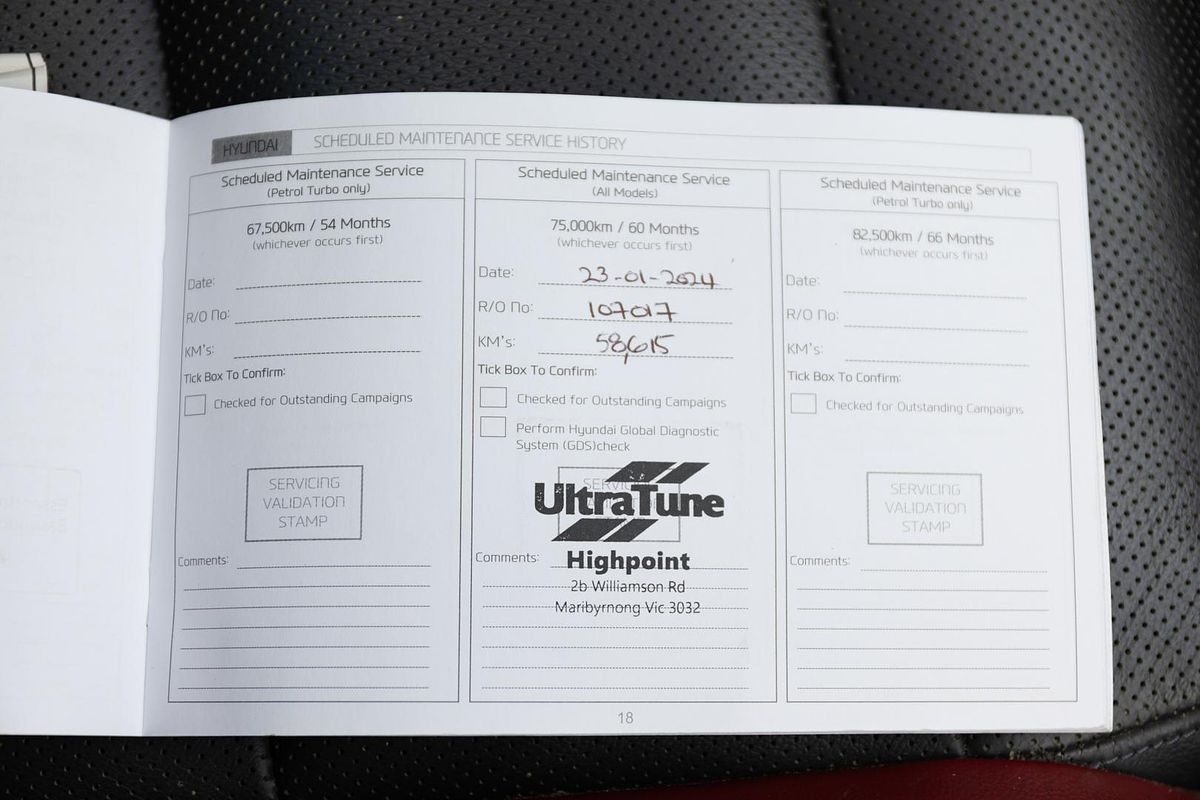 HYUNDAI SCHEDULED MAINTENANCE SERVICE HISTORY
Scheduled Maintenance Service
(Petrol Turbo only)
67,500km / 54 Months
(whichever occurs first)
Date:
R/O No:
KM's:
Tick Box To Confirm:
Checked for Outstanding Campaigns
SERVICING
VALIDATION
STAMP
Comments:
Scheduled Maintenance Service
(All Models)
75,000km / 60 Months
(whichever occurs first)
Date: 23-01-2024
R/O No: 107017
KM's: 58,615
Tick Box To Confirm:
Checked for Outstanding Campaigns
Perform Hyundai Global Diagnostic
System (GDS)check
UltraTune
Highpoint
Comments:
2b Williamson Rd
Maribyrnong Vic 3032
Scheduled Maintenance Service
(Petrol Turbo only)
82,500km / 66 Months
(whichever occurs first)
Date:
R/O No:
KM's:
Tick Box To Confirm:
Checked for Outstanding Campaigns
SERVICING
VALIDATION
STAMP
Comments:
18